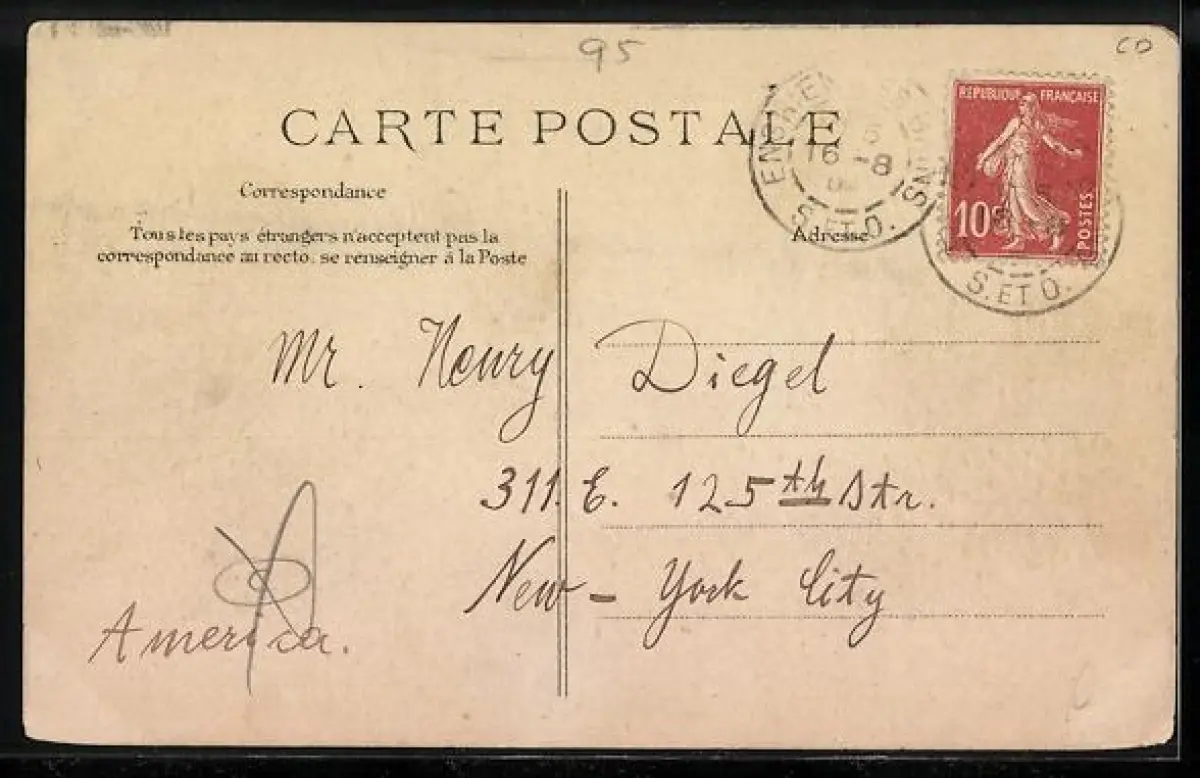 95
CD
CARTE POSTALE
REPUBLIQUE FRANÇAISE
10c
POSTES
16 -8
S. ET O.
S. ET O.
Correspondance
Adresse
Tous les pays étrangers n'acceptent pas la
correspondance au recto. se renseigner à la Poste
Mr. Henry Diegel
311. E. 125th Str.
New - York City
America.